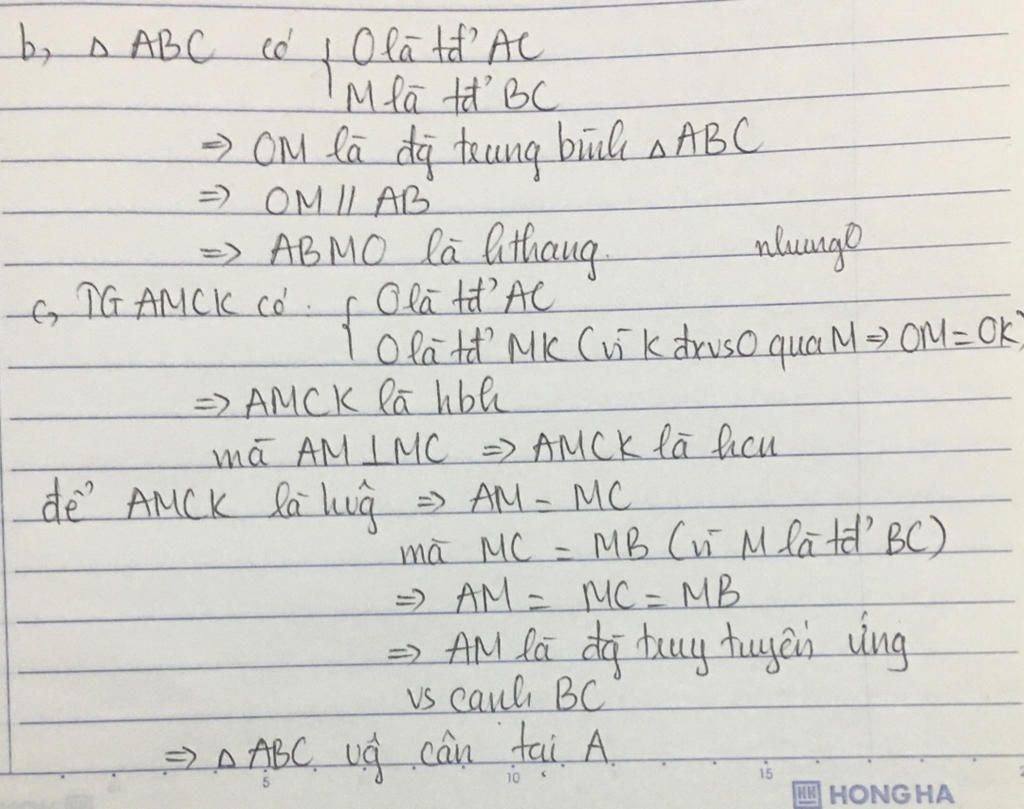 b, △ ABC có { O là tđ' AC
M là tđ' BC
⇒ OM là đg̃ trung bình △ ABC
⇒ OM // AB
⇒ ABMO là hthang. nhung0
c, TG AMCK có : { O là tđ' AC
O là tđ' MK (vì K đxvs O qua M ⇒ OM = OK)
⇒ AMCK là hbh
mà AM ⊥ MC ⇒ AMCK là hcn
để AMCK là hvg ⇒ AM = MC
mà MC = MB (vì M là tđ' BC)
⇒ AM = MC = MB
⇒ AM là đg̃ trug tuyến ứng
vs canh BC
⇒ △ ABC vg cân tại A
5 10 15
HONG HA